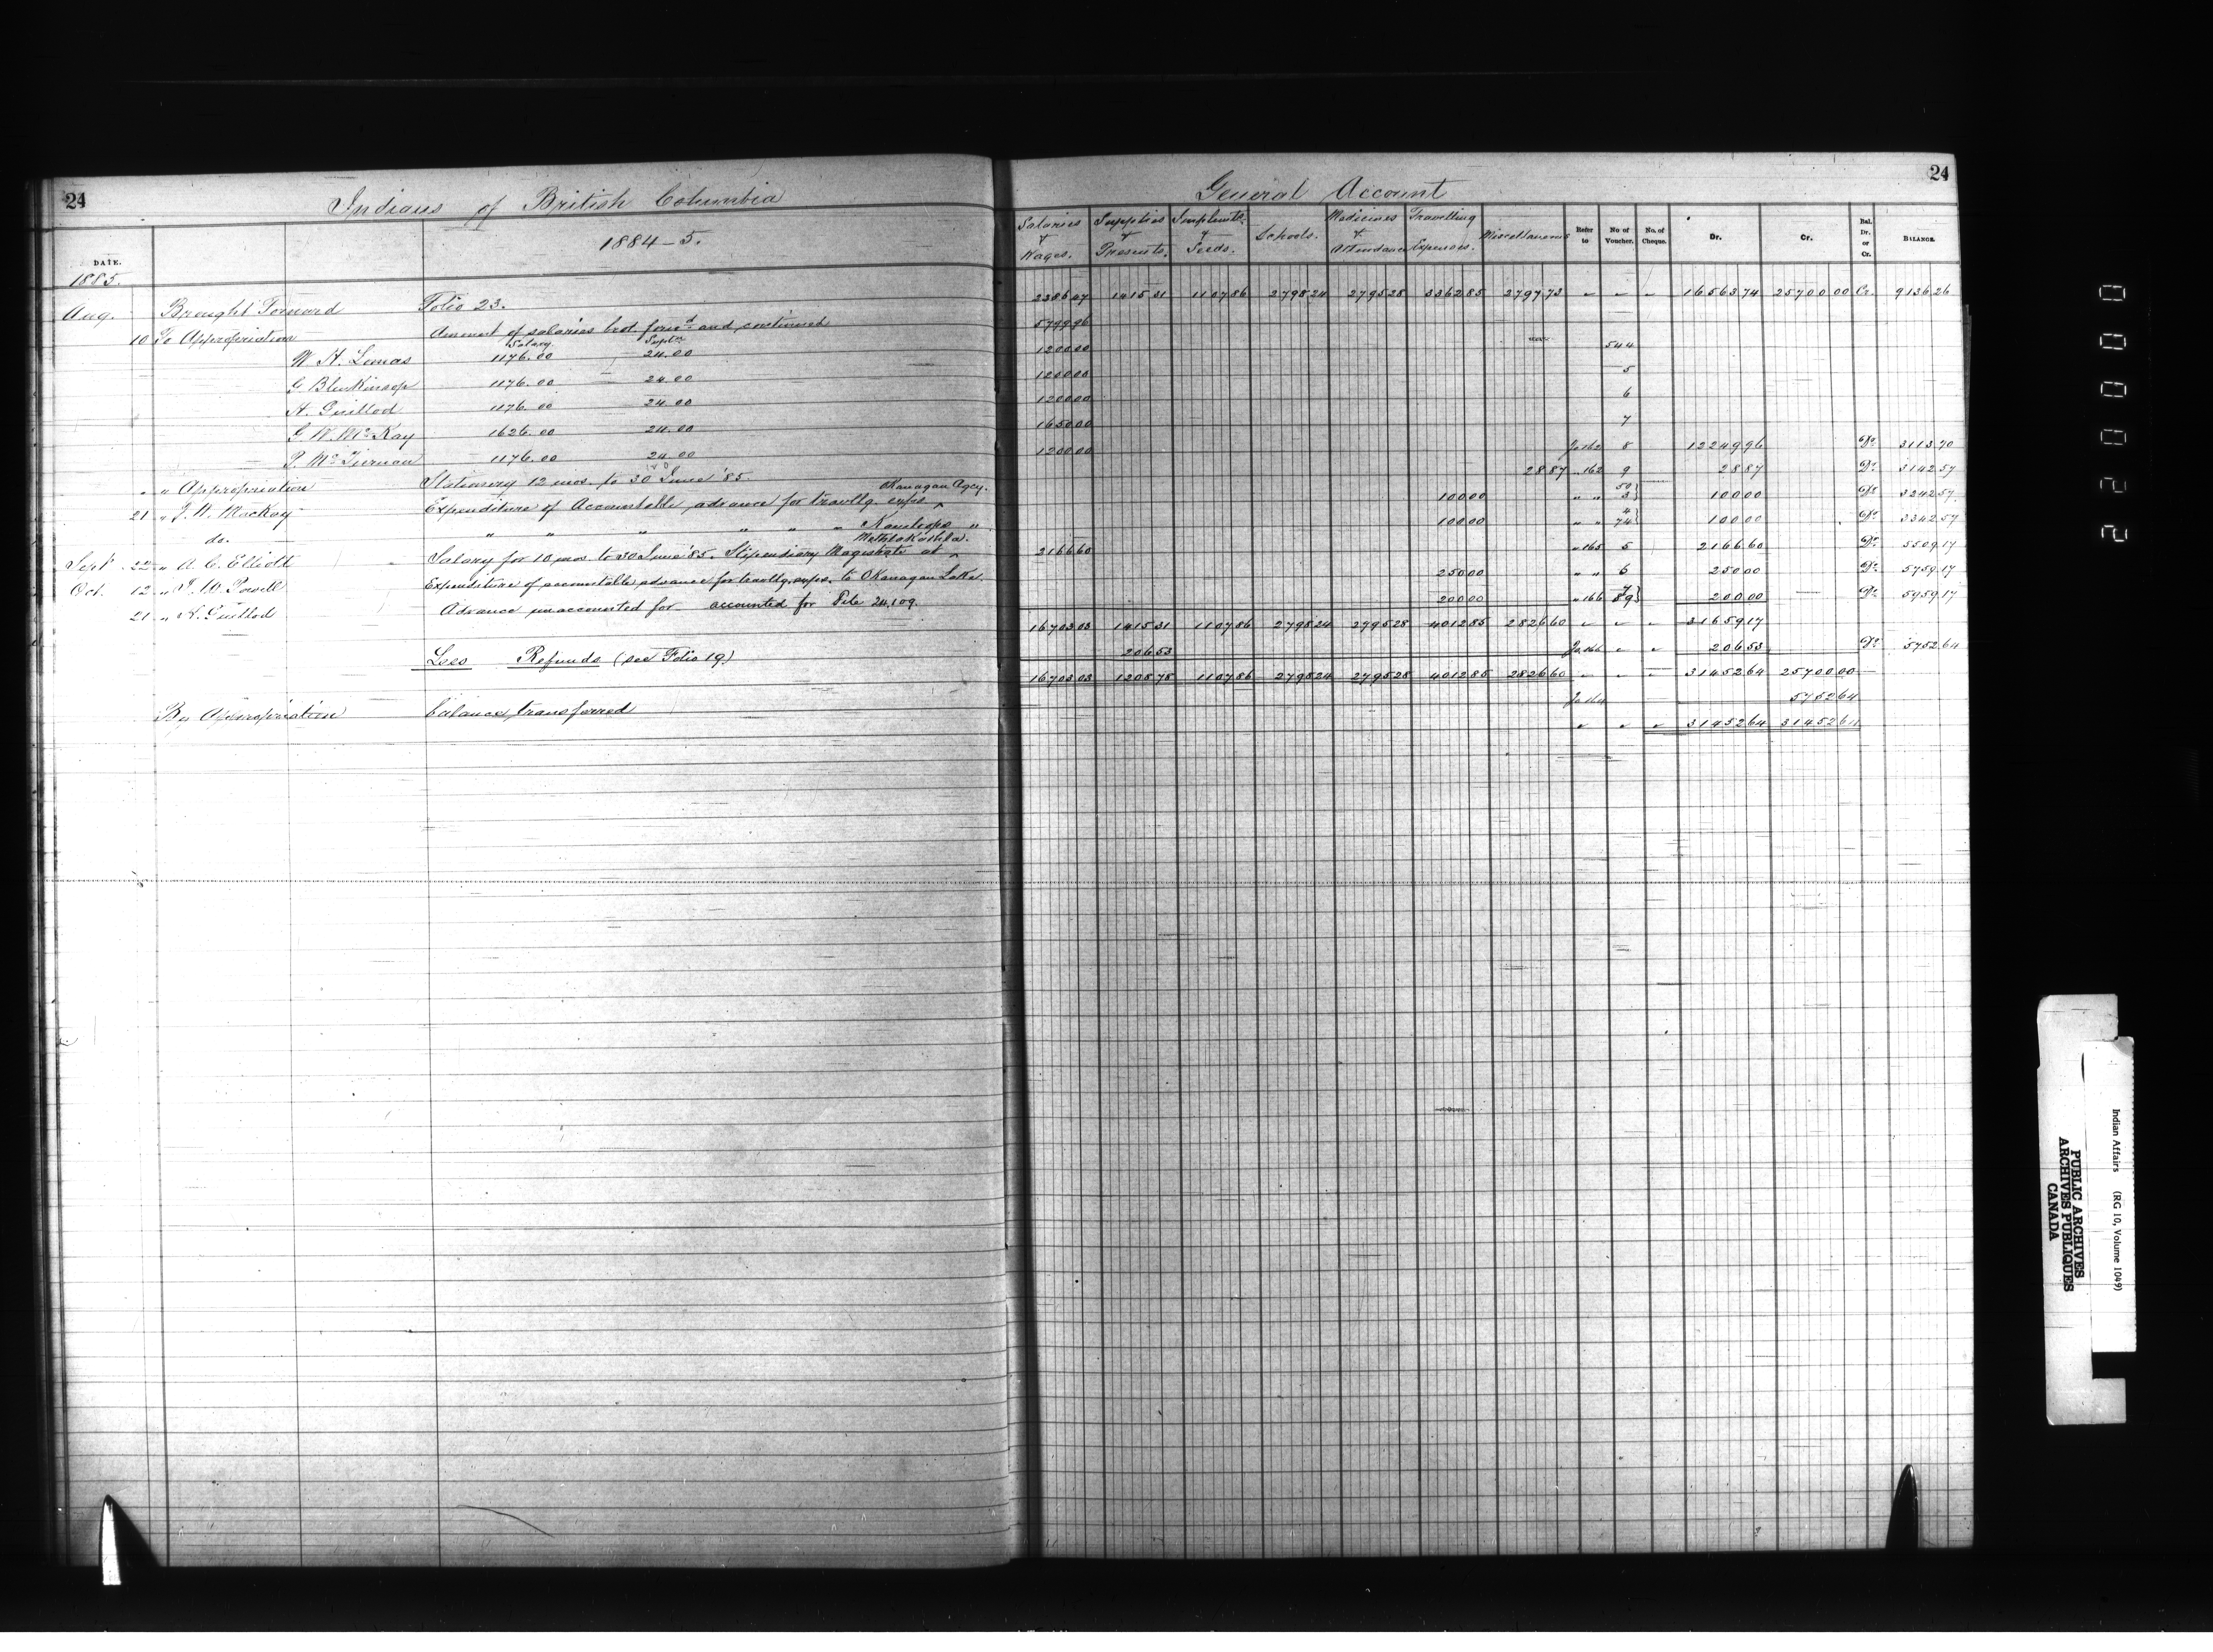 24
Indians of British Columbia
General Account
24
1884-5.
Salaries & Wages. Supplies & Presents. Implmts. & Seeds. Schools. Medicines & Attendance Travelling Expenses. Miscellaneous Refer to No of Voucher. No. of Cheque. Dr. Cr. Bal. Dr. or Cr. BALANCE.
DATE.
1885.
Aug. Brought Forward Folio 23. 2386 47 1415 31 1107 86 2798 24 2795 28 3362 85 2797 73 " " " 16563 74 25700 00 Cr. 9136 26
10 To Appropriation Amount of salaries brot. forwd. and continued 5799 96
Salary. Supt.
W. H. Lomas 1176.00 24.00 1200 00 544
G. Blenkinsop 1176.00 24.00 1200 00 5
H. Guillod 1176.00 24.00 1200 00 6
J. W. McKay 1626.00 24.00 1650 00 7
P. McTiernan 1176.00 24.00 1200 00 Jo 162 8 12249 96 Dr. 3113 70
" " Appropriation Stationery 12 mos. to 30 June '85. 28 87 " 162 9 28 87 Dr. 3142 57
21 " J. W. MacKay Expenditure of Accountable advance for travllg. exps. Okanagan Agcy. 100 00 " " 50 3} 100 00 Dr. 3242 57
do. " " " " " " Kamloops " 100 00 " " 4 74} 100 00 Dr. 3342 57
Sept. 22 " A. C. Elliott Salary for 10 mos. to 30 June '85. Stipendiary Magistrate at Methlakathla. 2166 60 " 165 5 2166 60 Dr. 5509 17
Oct. 12 " I. W. Powell Expenditure of accountable advance for travllg. exps. to Okanagan Lake. 250 00 " " 6 250 00 Dr. 5759 17
21 " H. Guillod Advance unaccounted for accounted for File 24,109. 200 00 " 166 7 89} 200 00 Dr. 5959 17
16703 03 1415 31 1107 86 2798 24 2795 28 4012 85 2826 60 " " " 31659 17
Less Refunds (see Folio 19.) 206 53 Jo 166 " " 206 53 Dr. 5752 64
16703 03 1208 78 1107 86 2798 24 2795 28 4012 85 2826 60 " " " 31452 64 25700 00
By Appropriation balance transferred Jo 164 5752 64
" " " 31452 64 31452 64
22000
Indian Affairs (RG 10, Volume 1049)
PUBLIC ARCHIVES
ARCHIVES PUBLIQUES
CANADA